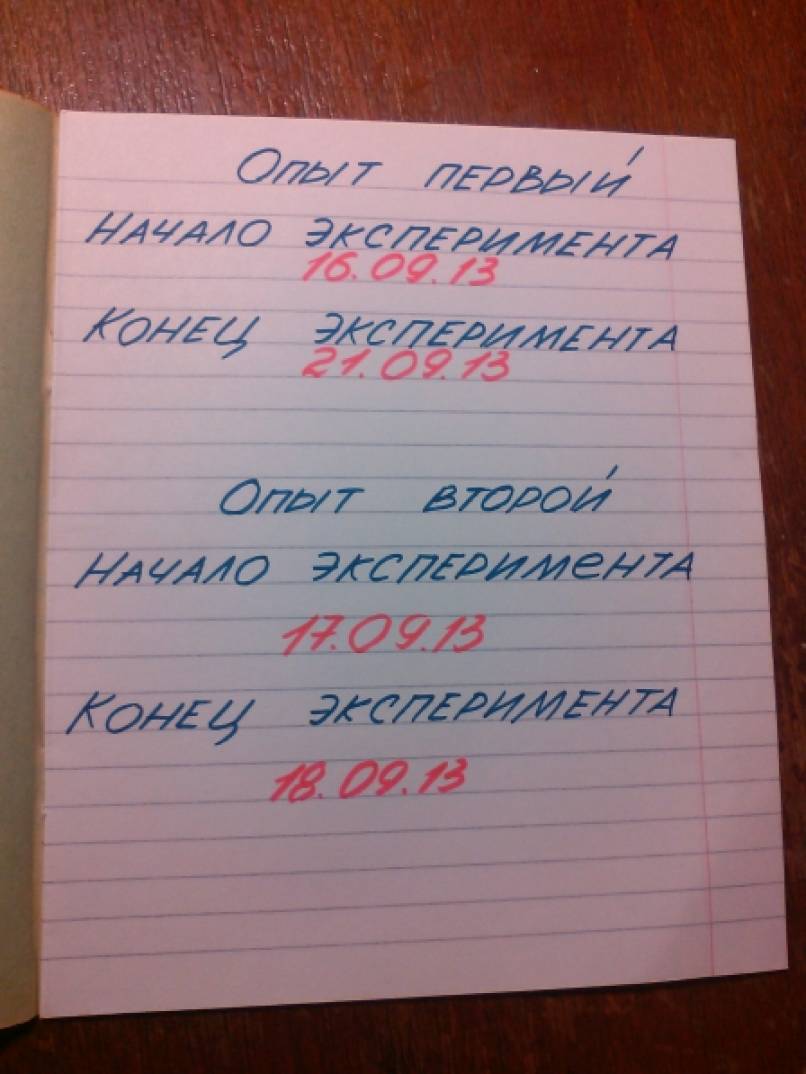 Опыт первый
Начало эксперимента
16.09.13
Конец эксперимента
21.09.13
Опыт второй
Начало эксперимента
17.09.13
Конец эксперимента
18.09.13